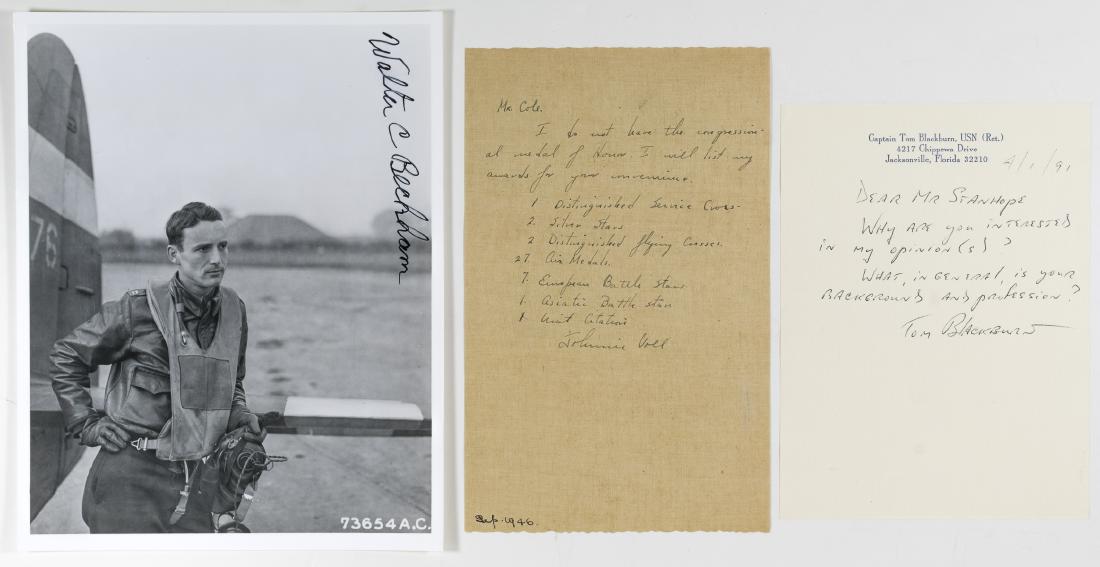 Walter C Beckham
76
73654A.C.
Mr. Cole.
I do not have the congression-
al medal of Honor. I will list my
awards for your convenience.
1 Distinguished Service Cross-
2. Silver Stars
2 Distinguished flying Crosses.
27. Air Medals.
7. European Battle stars
1. Asiatic Battle stars
1. Unit Citations
Johnnie Voll
Sep. 1946.
Captain Tom Blackburn, USN (Ret.)
4217 Chippewa Drive
Jacksonville, Florida 32210
4/1/91
DEAR MR STANHOPE
WHY ARE YOU INTERESTED
IN MY OPINION(S)?
WHAT, IN GENERAL, IS YOUR
BACKGROUND AND PROFESSION?
TOM BLACKBURN